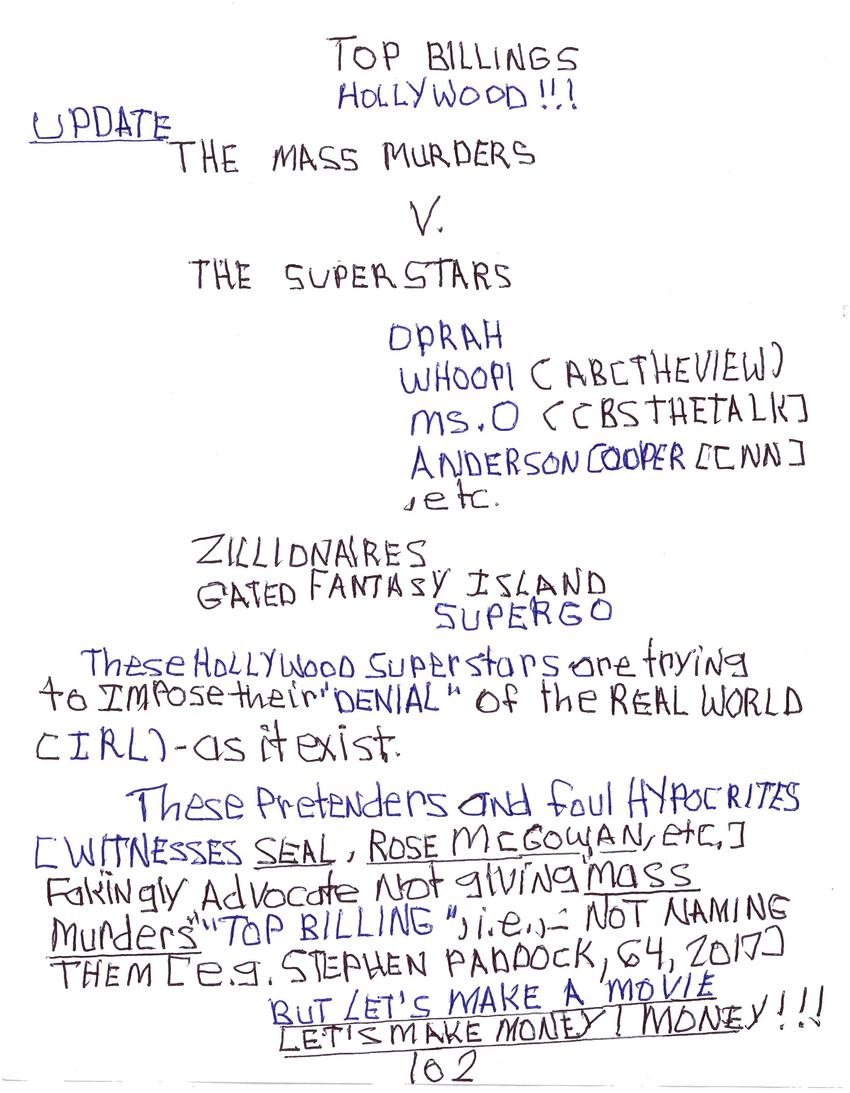 TOP BILLINGS
HOLLYWOOD!!!
UPDATE
THE MASS MURDERS
V.
THE SUPERSTARS
OPRAH
WHOOPI (ABCTHEVIEW)
MS.O (CBSTHETALK]
ANDERSON COOPER [CNN]
,etc.
ZILLIONAIRES
GATED FANTASY ISLAND
SUPERGO
These HOLLYWOOD Superstars are trying
to IMPOSE their "DENIAL" of the REAL WORLD
(IRL)-as it exist.
These Pretenders and foul HYPOCRITES
[WITNESSES SEAL, ROSE McGOWAN, etc,]
Fakingly Advocate Not giving "mass
Murders" "TOP BILLING", i.e.,- NOT NAMING
THEM [e.g. STEPHEN PADDOCK, 64, 2017]
BUT LET'S MAKE A MOVIE
LET'S MAKE MONEY! MONEY!!!
102